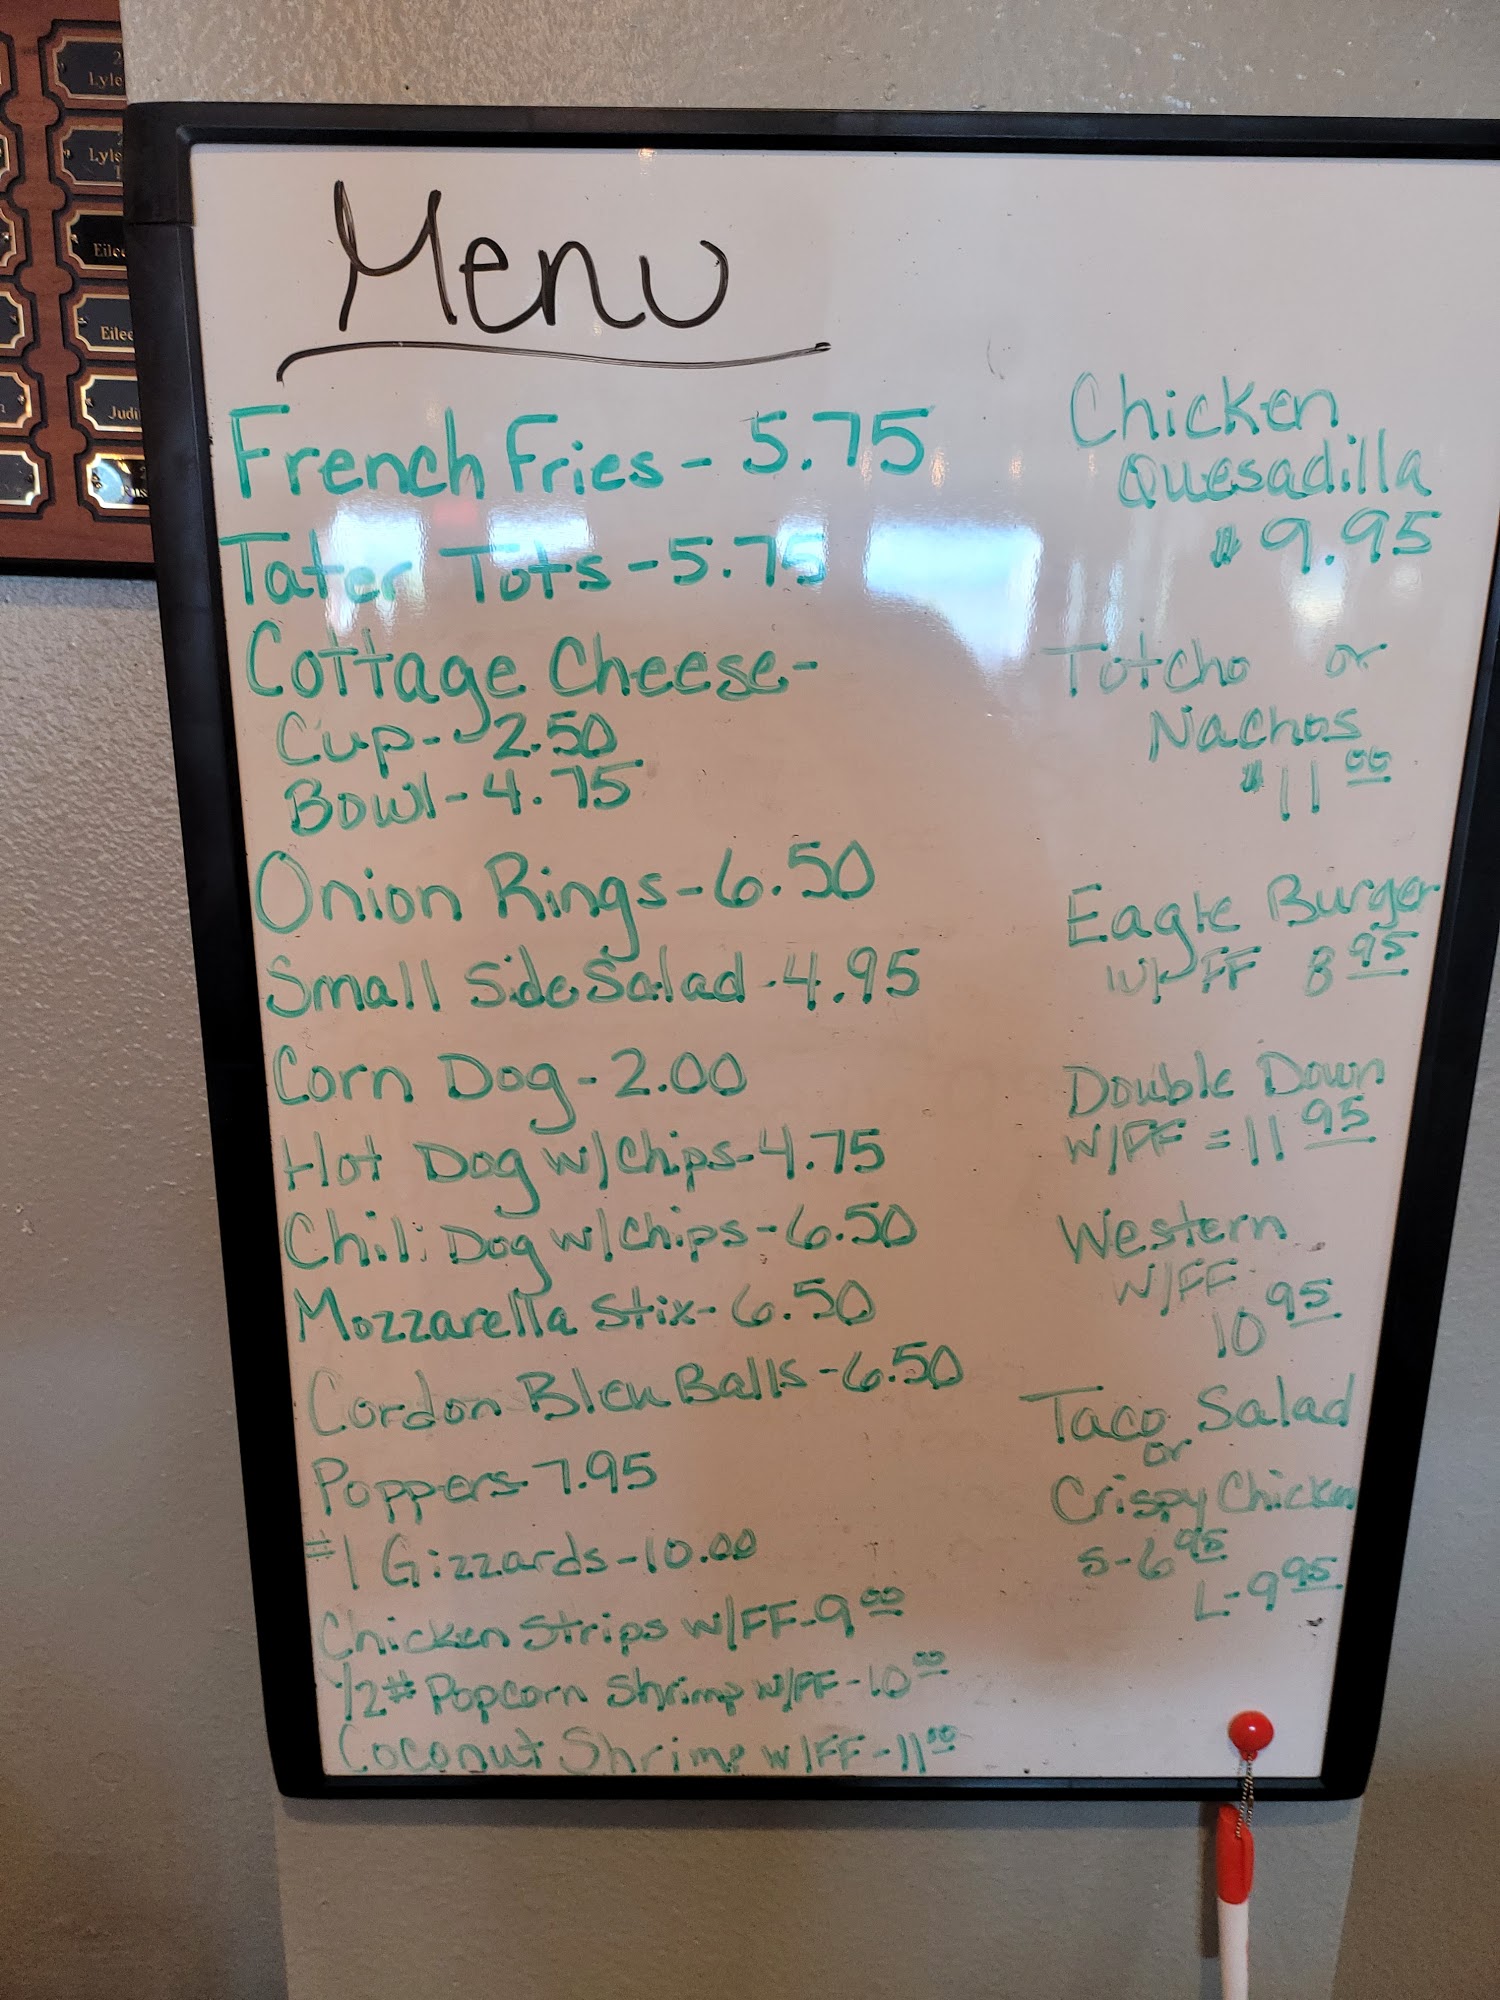 Lyle
Lyle
Eilee
Eilee
Judi
Menu
French Fries - 5.75
Tater Tots - 5.75
Cottage Cheese -
Cup - 2.50
Bowl - 4.75
Onion Rings - 6.50
Small Side Salad - 4.95
Corn Dog - 2.00
Hot Dog w/ Chips - 4.75
Chili Dog w/ Chips - 6.50
Mozzarella Stix - 6.50
Cordon Bleu Balls - 6.50
Poppers - 7.95
#1 Gizzards - 10.00
Chicken Strips w/FF - 9 00
1/2# Popcorn Shrimp w/FF - 10 00
Coconut Shrimp w/FF - 11 00
Chicken
Quesadilla
$ 9.95
Totcho or
Nachos
$ 11 00
Eagle Burger
w/ FF 8 95
Double Down
W/FF = 11 95
Western
W/FF
10 95
Taco Salad
or
Crispy Chicken
S - 6 95
L - 9 95